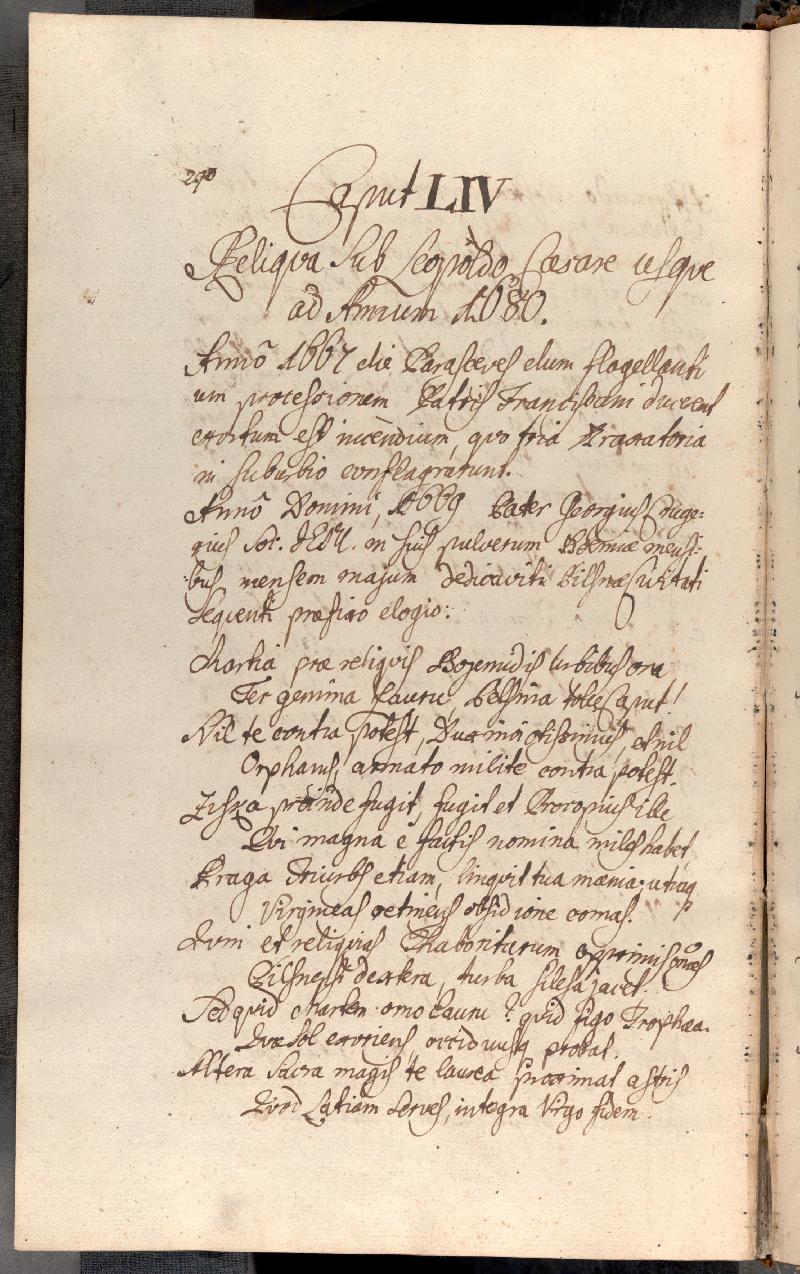 290
Caput LIV
Reliqva sub Leopoldo Cæsare usqve
ad Annum 1680.
Annô 1667 die Parasceves dum flagellanti
um processionem Patres Franciscani ducerent
exortum est incendium, quo tria Braxatoria
in suburbio conflagrarunt.
Annô Domini, 1669 Pater Georgius Cruge:
rius Soc: JESU. in suis pulverum Boemiæ mensi:
:bus mensem majum dedicavit Pilsnæ Civitati
seqventi præfixo elogio:
Martia præ reliqvis Bojemidis urbibus ora,
Ter gemina lauru, Pelsina tolle Caput!
Nil te contra potest, Dux invictissimus, et nil
Orphanus, armato milite contra potest.
Ziska proinde fugit, fugit et Procopius ille
Qvi magna è factis nomina miles habet,
Praga Triurbs etiam, linqvit tua mænia; utrinq
Virgineas retinens obsidione comas.
Dum et reliqvias Thaboritarum opprimis omes
Pilsnensi dextera, turba silesa jacet.
Sed quid Marten orno lauru? quid figo Trophæa.
Qvæ sol exoriens occiduusq probat.
Altera Sacra magis te laurea proximat astris
Qvod Latiam serves, integra Virgo fidem.